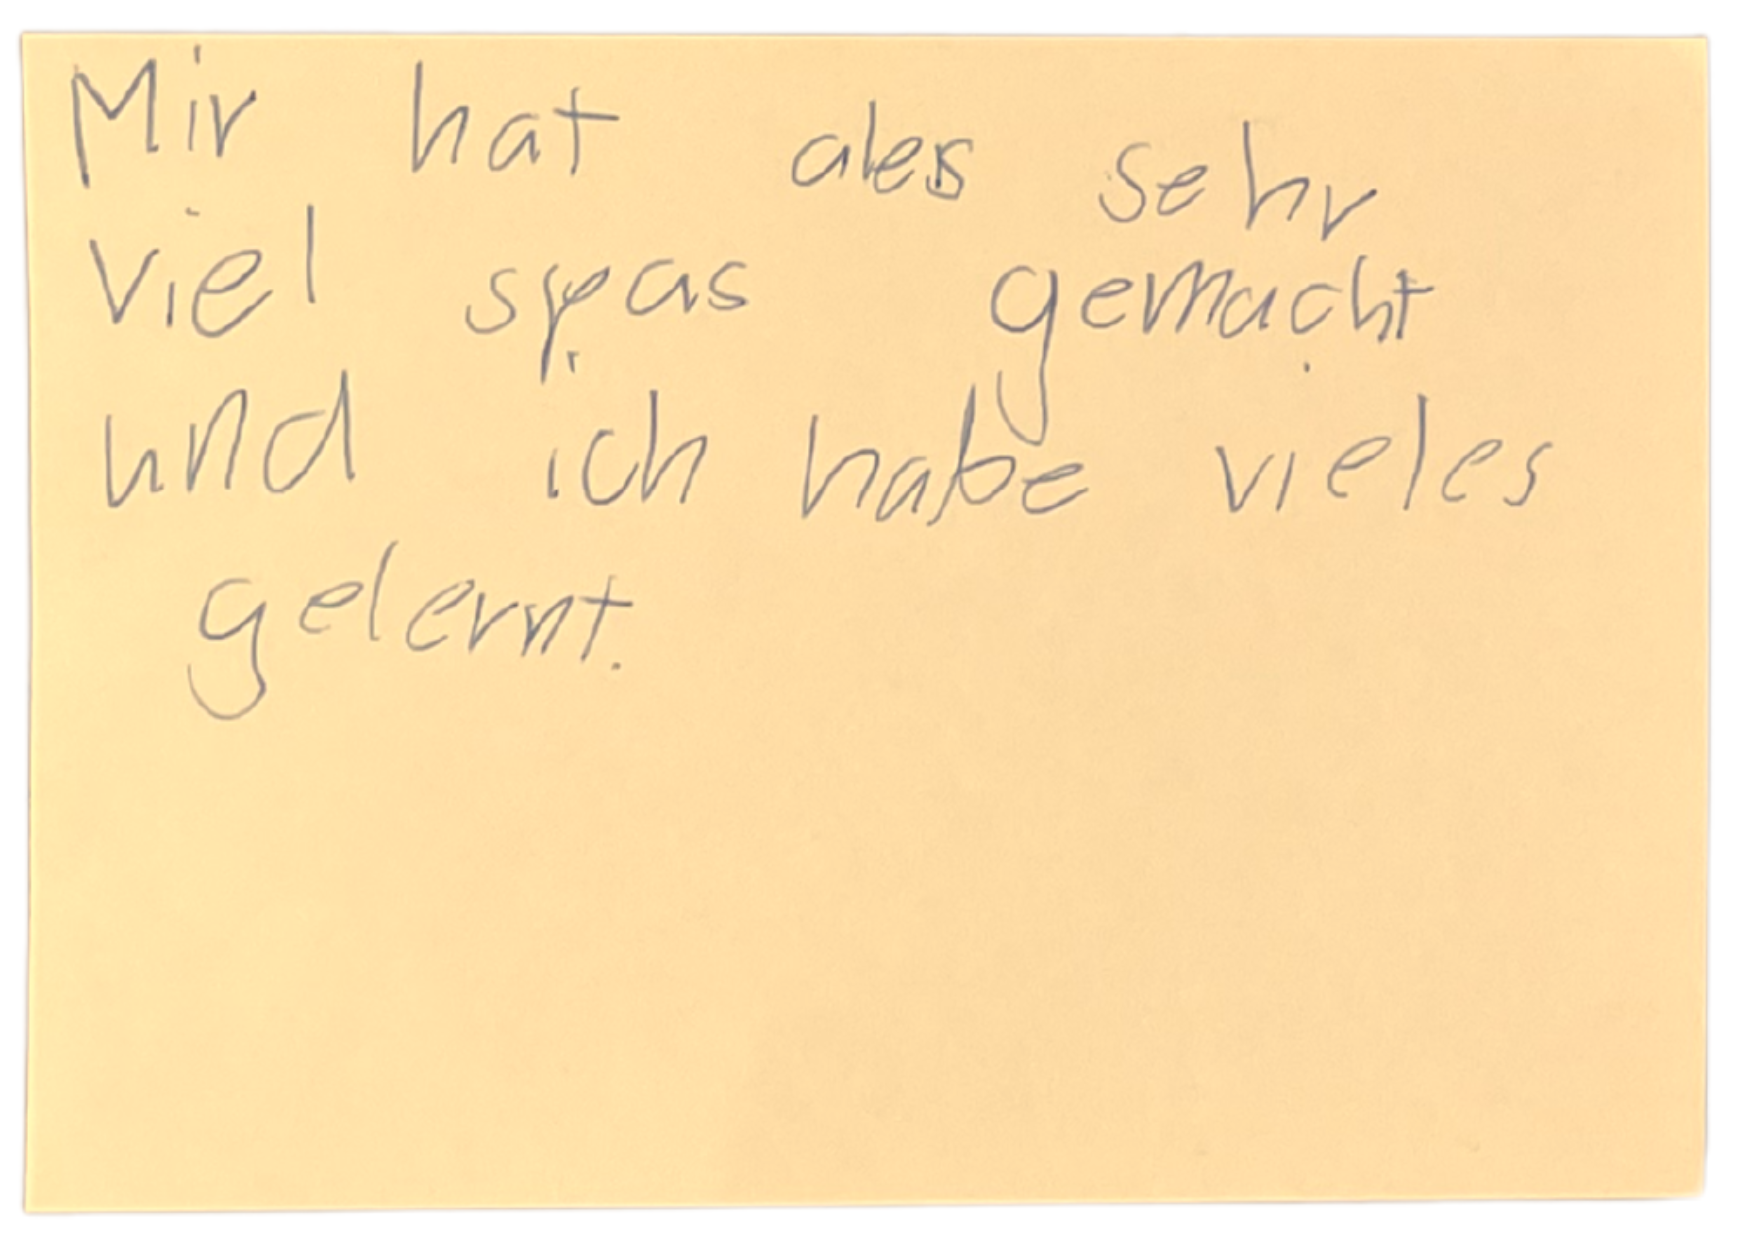 Mir hat ales sehr
viel spas gemacht
und ich habe vieles
gelernt.